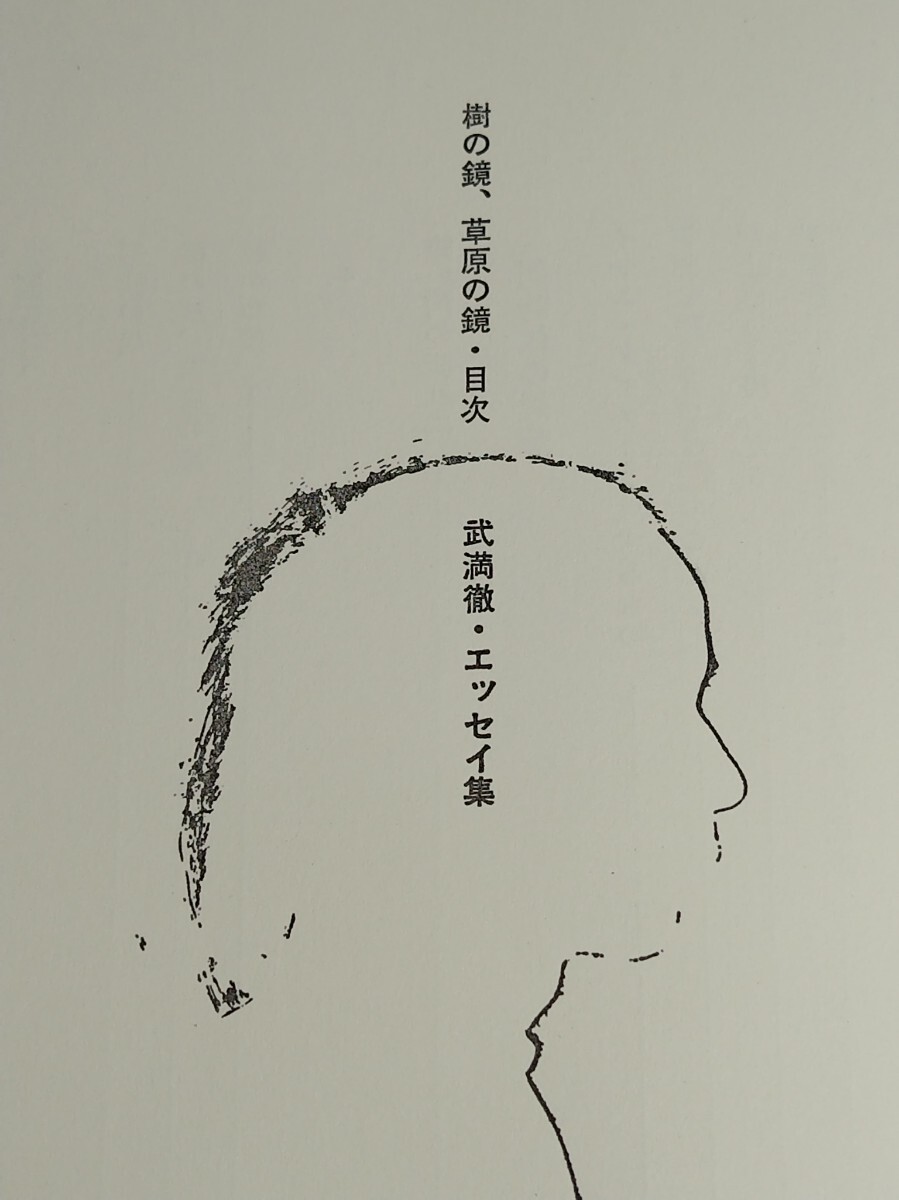 樹の鏡、草原の鏡・目次
武満徹・エッセイ集